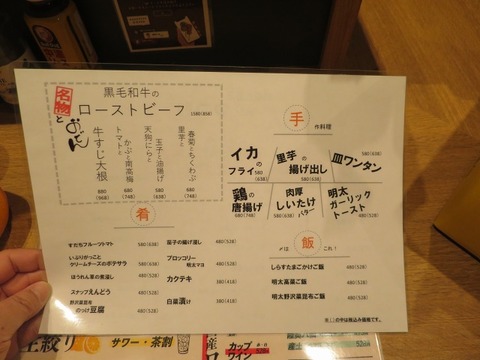 名物
黒毛和牛の
ローストビーフ 580(858)
と
おでん
春菊とちくわぶ
里芋と
玉子と油揚げ
天狗にらと
かぶと南高梅
トマトと
牛すじ大根
680
(748)
880
(968)
手
作料理
イカの
フライ 580
(638)
里芋の
揚げ出し
580
(638)
皿ワンタン
580(638)
鶏の
唐揚げ
680(748)
肉厚
しいたけ
バター
明太
ガーリック
トースト
480(528)
肴
すだちフルーツトマト 580(638)
いぶりがっこと
クリームチーズのポテサラ 580(638)
ほうれん草の煮浸し 480(528)
スナップえんどう 480(528)
野沢菜昆布
のっけ豆腐 480(528)
茄子の揚げ浸し 480(528)
ブロッコリー
明太マヨ 480(528)
カクテキ 480(528)
白菜漬け 480(528)
〆は
飯
これ!
しらすたまごかけご飯 480(528)
明太高菜ご飯 480(528)
明太野沢菜昆布ご飯 480(528)
※()の中は税込み価格です。
生絞り
サワー・茶割
カップ
ワイン